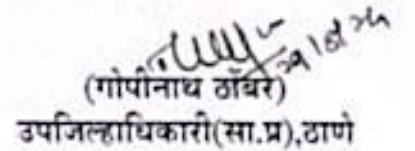 (गोपीनाथ ठोंबरे)
उपजिल्हाधिकारी(सा.प्र),ठाणे